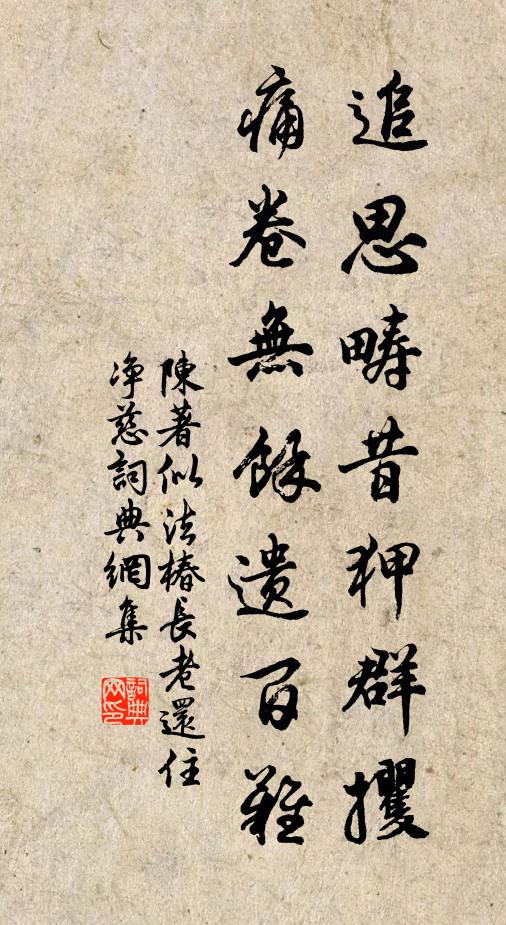 追思疇昔狎群攫
痛卷無餘遺百難
陳著似法椿長老還住
淨慈詞典網集
詞典網印